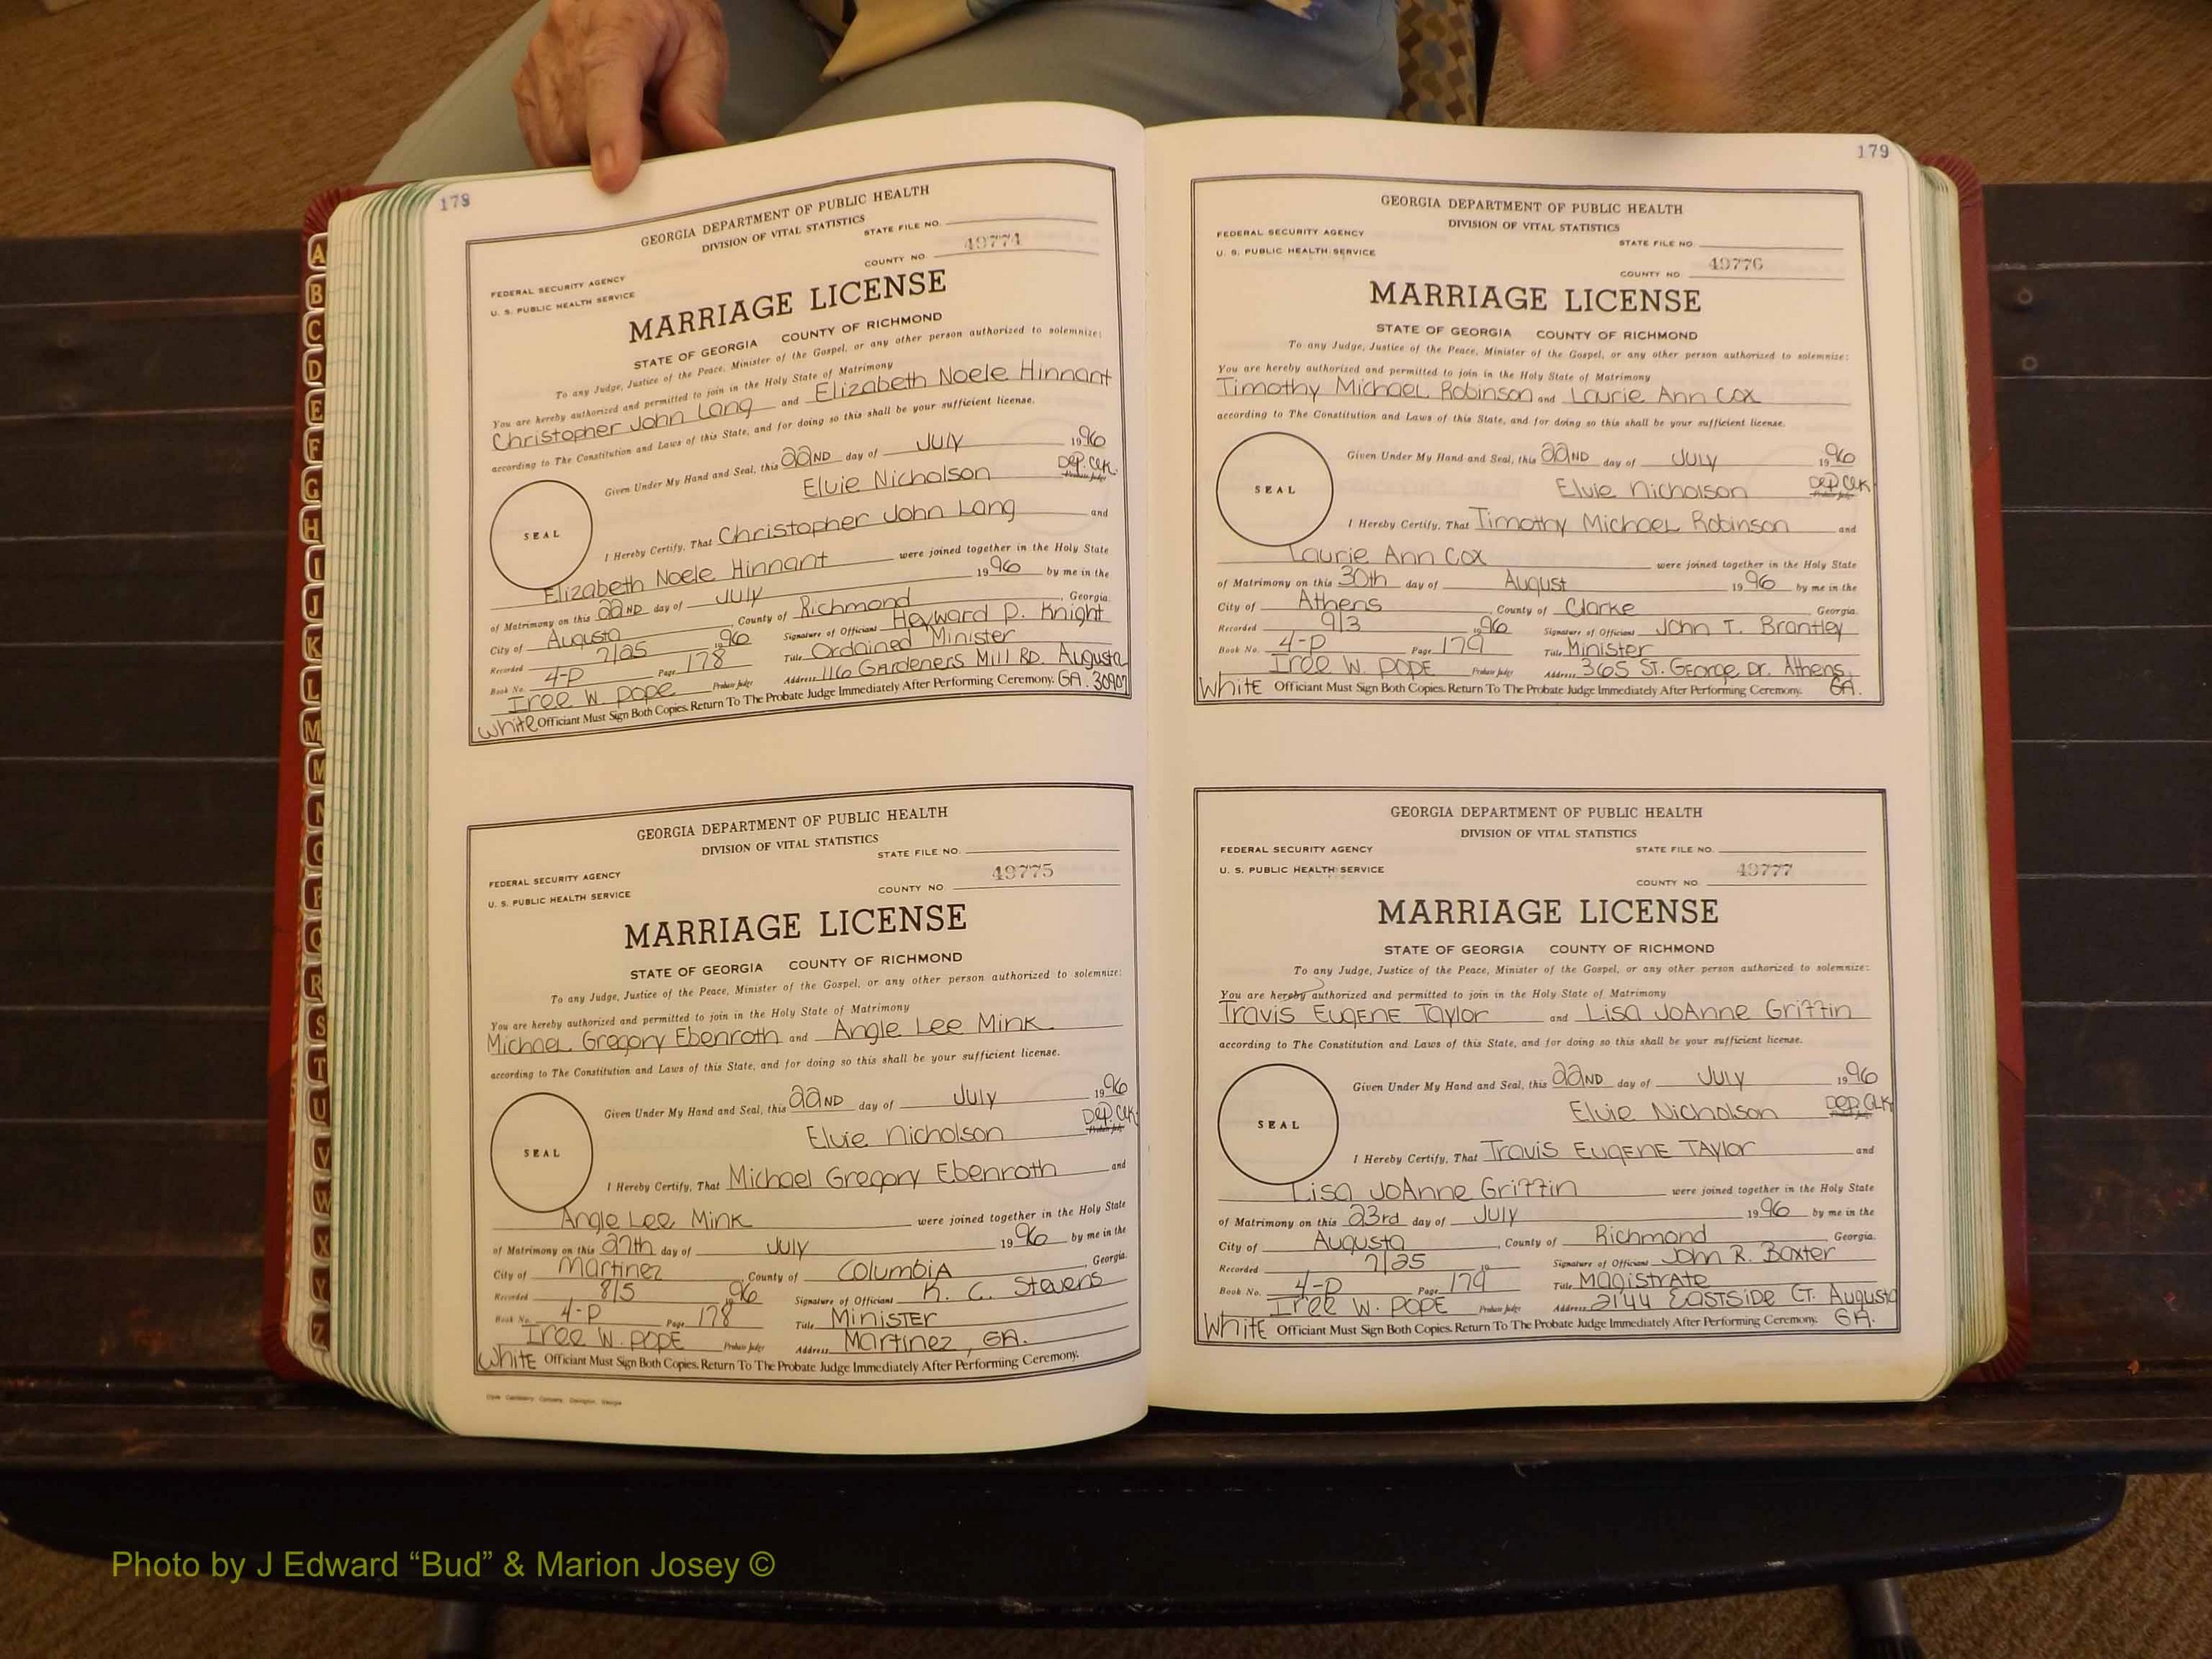 178
GEORGIA DEPARTMENT OF PUBLIC HEALTH
DIVISION OF VITAL STATISTICS
STATE FILE NO.
49774
COUNTY NO.
FEDERAL SECURITY AGENCY
U. S. PUBLIC HEALTH SERVICE
MARRIAGE LICENSE
STATE OF GEORGIA COUNTY OF RICHMOND
To any Judge, Justice of the Peace, Minister of the Gospel, or any other person authorized to solemnize:
You are hereby authorized and permitted to join in the Holy State of Matrimony
Christopher John Lang and Elizabeth Noele Hinnant
according to The Constitution and Laws of this State, and for doing so this shall be your sufficient license.
Given Under My Hand and Seal, this 22ND day of July 1996
Elvie Nicholson Dep. Clk. Probate Judge
SEAL
I Hereby Certify, That Christopher John Lang and
Elizabeth Noele Hinnant were joined together in the Holy State
of Matrimony on this 22ND day of July 1996 by me in the
City of Augusta, County of Richmond, Georgia.
Recorded 7/25 1996 Signature of Officiant Heyward D. Knight
Book No. 4-P Page 178 Title Ordained Minister
Iree W. Pope Probate Judge Address 116 Gardeners Mill RD. Augusta
White Officiant Must Sign Both Copies. Return To The Probate Judge Immediately After Performing Ceremony. GA. 30907
GEORGIA DEPARTMENT OF PUBLIC HEALTH
DIVISION OF VITAL STATISTICS
STATE FILE NO.
49775
FEDERAL SECURITY AGENCY
COUNTY NO
U. S. PUBLIC HEALTH SERVICE
MARRIAGE LICENSE
STATE OF GEORGIA COUNTY OF RICHMOND
To any Judge, Justice of the Peace, Minister of the Gospel, or any other person authorized to solemnize:
You are hereby authorized and permitted to join in the Holy State of Matrimony
Michael Gregory Ebenroth and Angle Lee Mink
according to The Constitution and Laws of this State, and for doing so this shall be your sufficient license.
Given Under My Hand and Seal, this 22ND day of July 1996
Elvie Nicholson Dep. Clk. Probate Judge
SEAL
I Hereby Certify, That Michael Gregory Ebenroth and
Angle Lee Mink were joined together in the Holy State
of Matrimony on this 27th day of July 1996 by me in the
City of Martinez, County of Columbia, Georgia.
Recorded 8/5 1996 Signature of Officiant K. C. Stevens
Book No. 4-P Page 178 Title Minister
Iree W. Pope Probate Judge Address Martinez, GA.
White Officiant Must Sign Both Copies. Return To The Probate Judge Immediately After Performing Ceremony.
179
GEORGIA DEPARTMENT OF PUBLIC HEALTH
DIVISION OF VITAL STATISTICS
FEDERAL SECURITY AGENCY
STATE FILE NO.
U. S. PUBLIC HEALTH SERVICE
49776
COUNTY NO.
MARRIAGE LICENSE
STATE OF GEORGIA COUNTY OF RICHMOND
To any Judge, Justice of the Peace, Minister of the Gospel, or any other person authorized to solemnize:
You are hereby authorized and permitted to join in the Holy State of Matrimony
Timothy Michael Robinson and Laurie Ann Cox
according to The Constitution and Laws of this State, and for doing so this shall be your sufficient license.
Given Under My Hand and Seal, this 22ND day of July 1996
Elvie Nicholson Dep Clk Probate Judge
SEAL
I Hereby Certify, That Timothy Michael Robinson and
Laurie Ann Cox were joined together in the Holy State
of Matrimony on this 30th day of August 1996 by me in the
City of Athens, County of Clarke, Georgia.
Recorded 9/3 1996 Signature of Officiant John T. Brantley
Book No. 4-P Page 179 Title Minister
Iree W. Pope Probate Judge Address 365 St. George Dr. Athens,
White Officiant Must Sign Both Copies. Return To The Probate Judge Immediately After Performing Ceremony. GA.
GEORGIA DEPARTMENT OF PUBLIC HEALTH
DIVISION OF VITAL STATISTICS
FEDERAL SECURITY AGENCY
STATE FILE NO.
U. S. PUBLIC HEALTH SERVICE
49777
COUNTY NO.
MARRIAGE LICENSE
STATE OF GEORGIA COUNTY OF RICHMOND
To any Judge, Justice of the Peace, Minister of the Gospel, or any other person authorized to solemnize:
You are hereby authorized and permitted to join in the Holy State of Matrimony
Travis Eugene Taylor and Lisa JoAnne Griffin
according to The Constitution and Laws of this State, and for doing so this shall be your sufficient license.
Given Under My Hand and Seal, this 22ND day of July 1996
Elvie Nicholson Dep. Clk Probate Judge
SEAL
I Hereby Certify, That Travis Eugene Taylor and
Lisa JoAnne Griffin were joined together in the Holy State
of Matrimony on this 23rd day of July 1996 by me in the
City of Augusta, County of Richmond Georgia.
Recorded 7/25 19 Signature of Officiant John R. Baxter
Book No. 4-P Page 179 Title Magistrate
Iree W. Pope Probate Judge Address 2144 Eastside Ct. Augusta
White Officiant Must Sign Both Copies. Return To The Probate Judge Immediately After Performing Ceremony. GA.
A
B
C
D
E
F
G
H
I
J
K
L
M
M
N
O
P
Q
R
S
T
U
V
W
X
Y
Z
Photo by J Edward “Bud” & Marion Josey ©